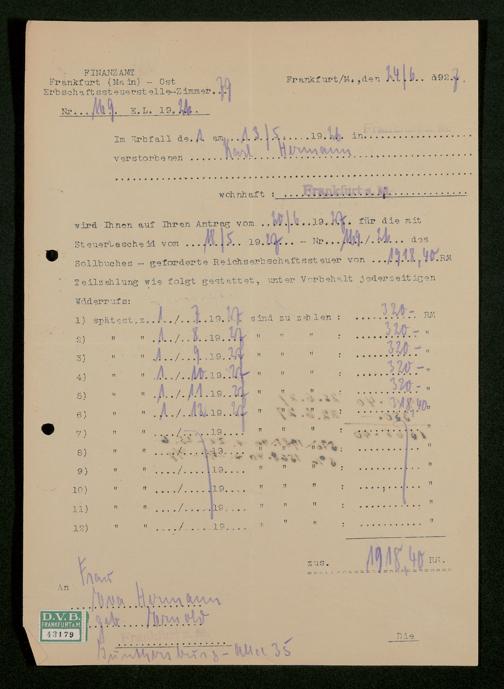 FINANZAMT
Frankfurt (Main) - Ost
Erbschaftssteuerstelle-Zimmer..79
Frankfurt/M.,den 24/6.. 1927.
Nr...169. E.L. 19.26.
Im Erbfall des.1 am...13/5.....1926 in
verstorbenen Karl Hermann
wohnhaft : Frankfurt a. M.
wird Ihnen auf Ihren Antrag vom ..20/6...1927. für die mit
Steuerbescheid vom ...18/5. 1927.. - Nr...169./.26... des
Sollbuches - geforderte Reichserbschaftssteuer von ...1918,40.RM
Teilzahlung wie folgt gestattet, unter Vorbehalt jederzeitigen
Widerrufs:
1) spätest.z.1../..7..1927 sind zu zahlen : ...320.- RM
2) " " 1../..8..1927 " " " : ...320.- "
3) " " 1../..9..1927 " " " : ...320.- "
4) " " 1../..10..1927 " " " : ...320.- "
5) " " 1../..11..1927 " " " : ...320.- "
6) " " 1../..12..1927 " " " : ...318.40 "
7) " " ..../.....19.... " " " : "
8) " " ..../.....19.... " " " : "
9) " " ..../.....19.... " " " : "
10) " " ..../.....19.... " " " : "
11) " " ..../.....19.... " " " : "
12) " " ..../.....19.... " " " : "
zus. 1918,40 RM.
An Frau
Hermann
geb.
Günthersburg-Allee 35
D.V.B.
FRANKFURT A.M.
43179
Die